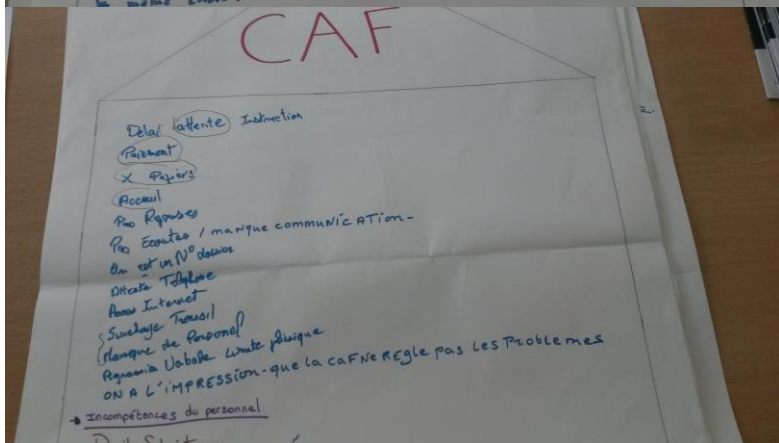 CAF
Delai attente Instruction
Paiement
X Papiers
Acceuil
Pas Reponses
Pas Ecoutes / manque communication-
On est un N° dossier
Attente Telephone
Acces Internet
Surchage Travail
Manque de Personnel
Verbale Limite physique
ON A L'IMPRESSION-que la CAF Ne Regle pas les Problemes
→ Incompétences du personnel